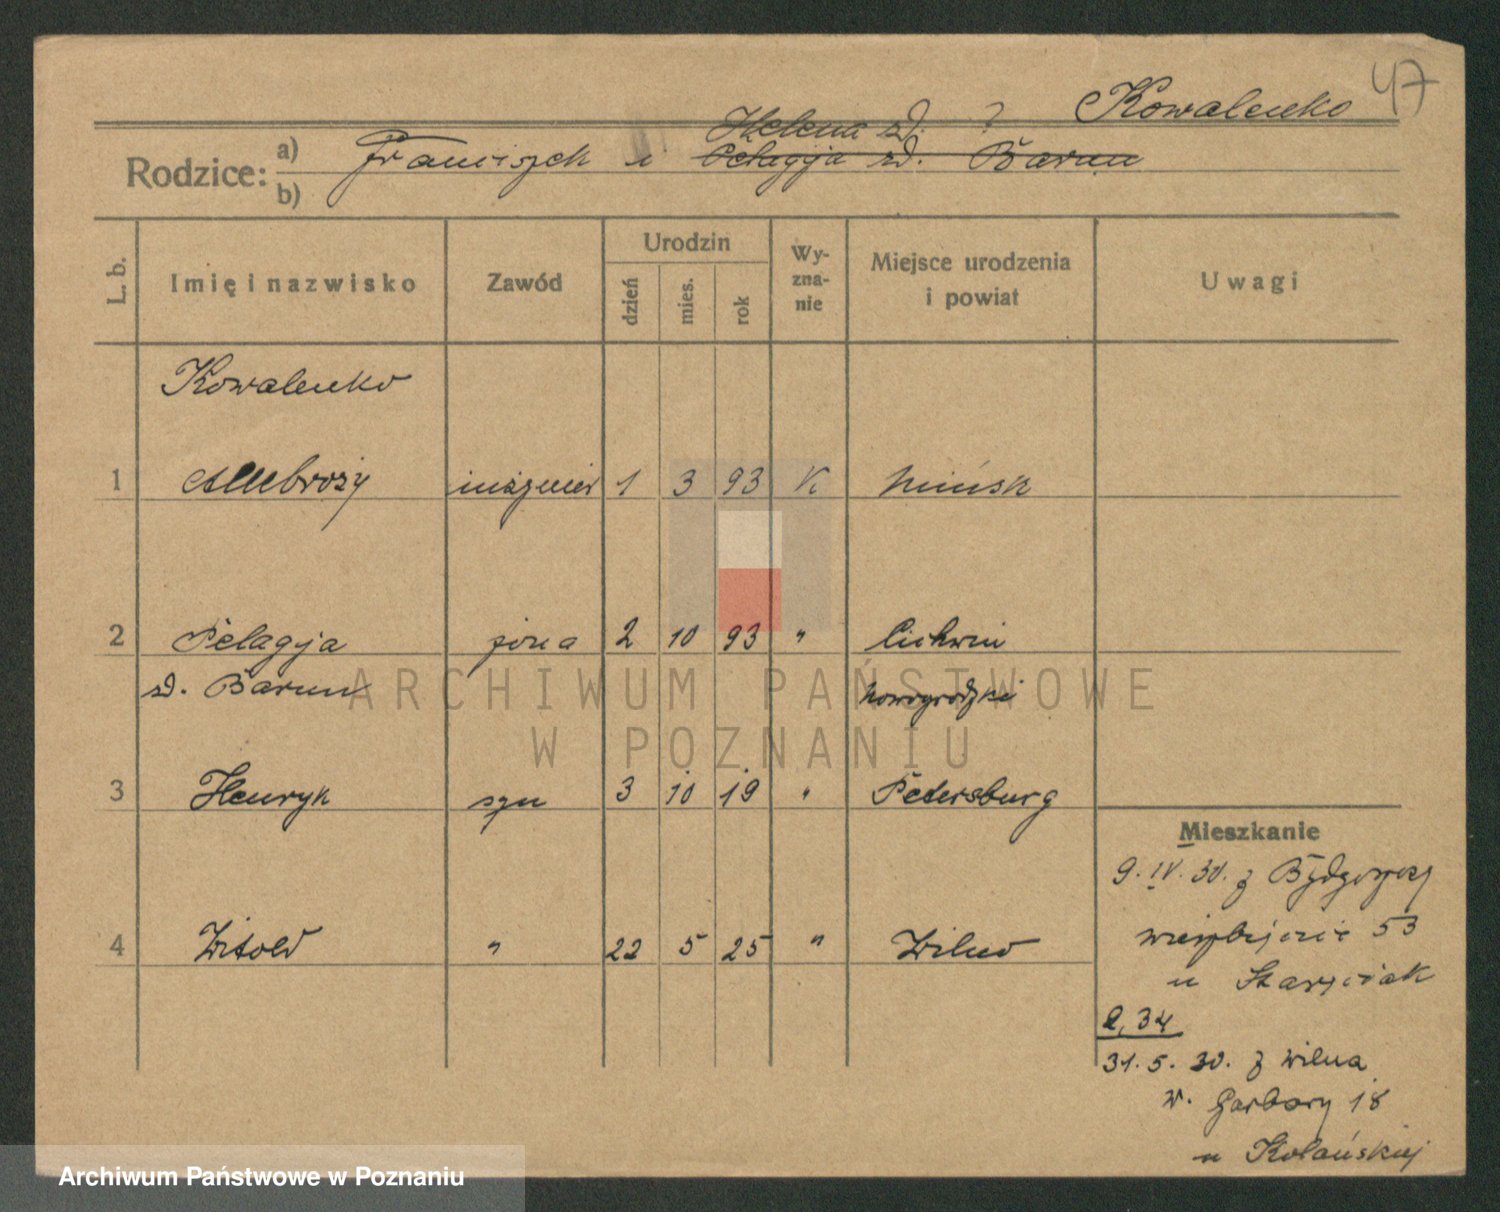 47
Kowalenko
Helena zd. ?
Rodzice: a) Franciszek i Pelagja zd. Barun
b)
L. b. Imię i nazwisko Zawód Urodzin dzień mies. rok Wyznanie Miejsce urodzenia i powiat Uwagi
Kowalenko
1 Ambroży inżynier 1 3 93 K Mińsk
2 Pelagja żona 2 10 93 " Cichwin
zd. Barun nowogrodzki
3 Henryk syn 3 10 19 " Petersburg
Mieszkanie
9. IV. 30. z Bydgoszczy
4 Witold " 22 5 25 " Wilno
wierzbięcice 53
u
2,34
31. 5. 30. z Wilna
w. Garbary 18
u Kolańskiej
ARCHIWUM PAŃSTWOWE
W POZNANIU
Archiwum Państwowe w Poznaniu